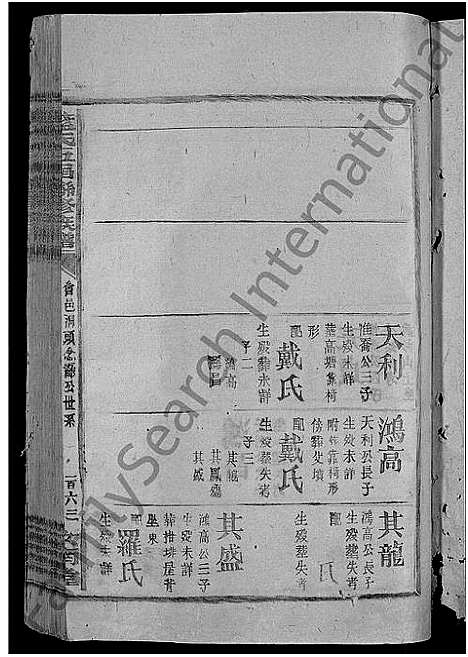 會邑洞頭念靜公世系
一百六三
天利
惟喬公三子
生歿未詳
葬高塘象構
形
配戴氏
生歿葬未詳
子二
鴻高
天利公長子
生歿未詳
傍葬父墳
配戴氏
生歿葬失考
子三
其龍
其鳳
其盛
其龍
鴻高公長子
生歿葬失考
配 氏
生歿葬失考
其盛
鴻高公三子
生歿未詳
葬排排屋背
坐東
配羅氏
生歿未詳
FamilySearch International